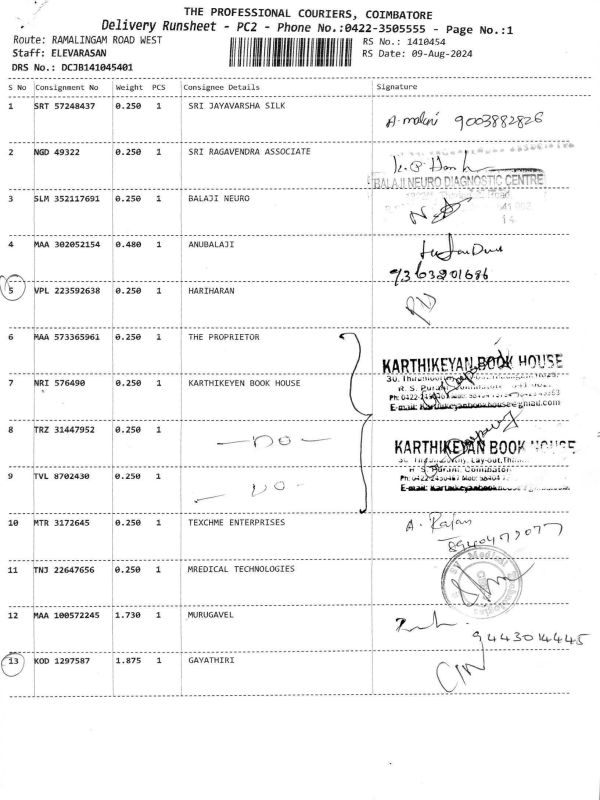 THE PROFESSIONAL COURIERS, COIMBATORE
Delivery Runsheet - PC2 - Phone No.:0422-3505555 - Page No.:1
Route: RAMALINGAM ROAD WEST
RS No.: 1410454
Staff: ELEVARASAN
RS Date: 09-Aug-2024
DRS No.: DCJB141045401
S No Consignment No Weight PCS Consignee Details Signature
1 SRT 57248437 0.250 1 SRI JAYAVARSHA SILK
A. malani 9003882826
2 NGD 49322 0.250 1 SRI RAGAVENDRA ASSOCIATE
BALAJI NEURO DIAGNOSTIC CENTRE
3 SLM 352117691 0.250 1 BALAJI NEURO
4 MAA 302052154 0.480 1 ANUBALAJI
7363201686
5 VPL 223592638 0.250 1 HARIHARAN
6 MAA 573365961 0.250 1 THE PROPRIETOR
KARTHIKEYAN BOOK HOUSE
7 NRI 576490 0.250 1 KARTHIKEYEN BOOK HOUSE
E-mail: Karthikeyanbookhouse@gmail.com
8 TRZ 31447952 0.250 1 - DO -
KARTHIKEYAN BOOK HOUSE
9 TVL 8702430 0.250 1 - DO -
10 MTR 3172645 0.250 1 TEXCHME ENTERPRISES
A. Rajan
8940473077
11 TNJ 22647656 0.250 1 MREDICAL TECHNOLOGIES
12 MAA 100572245 1.730 1 MURUGAVEL
9443014445
13 KOD 1297587 1.875 1 GAYATHIRI